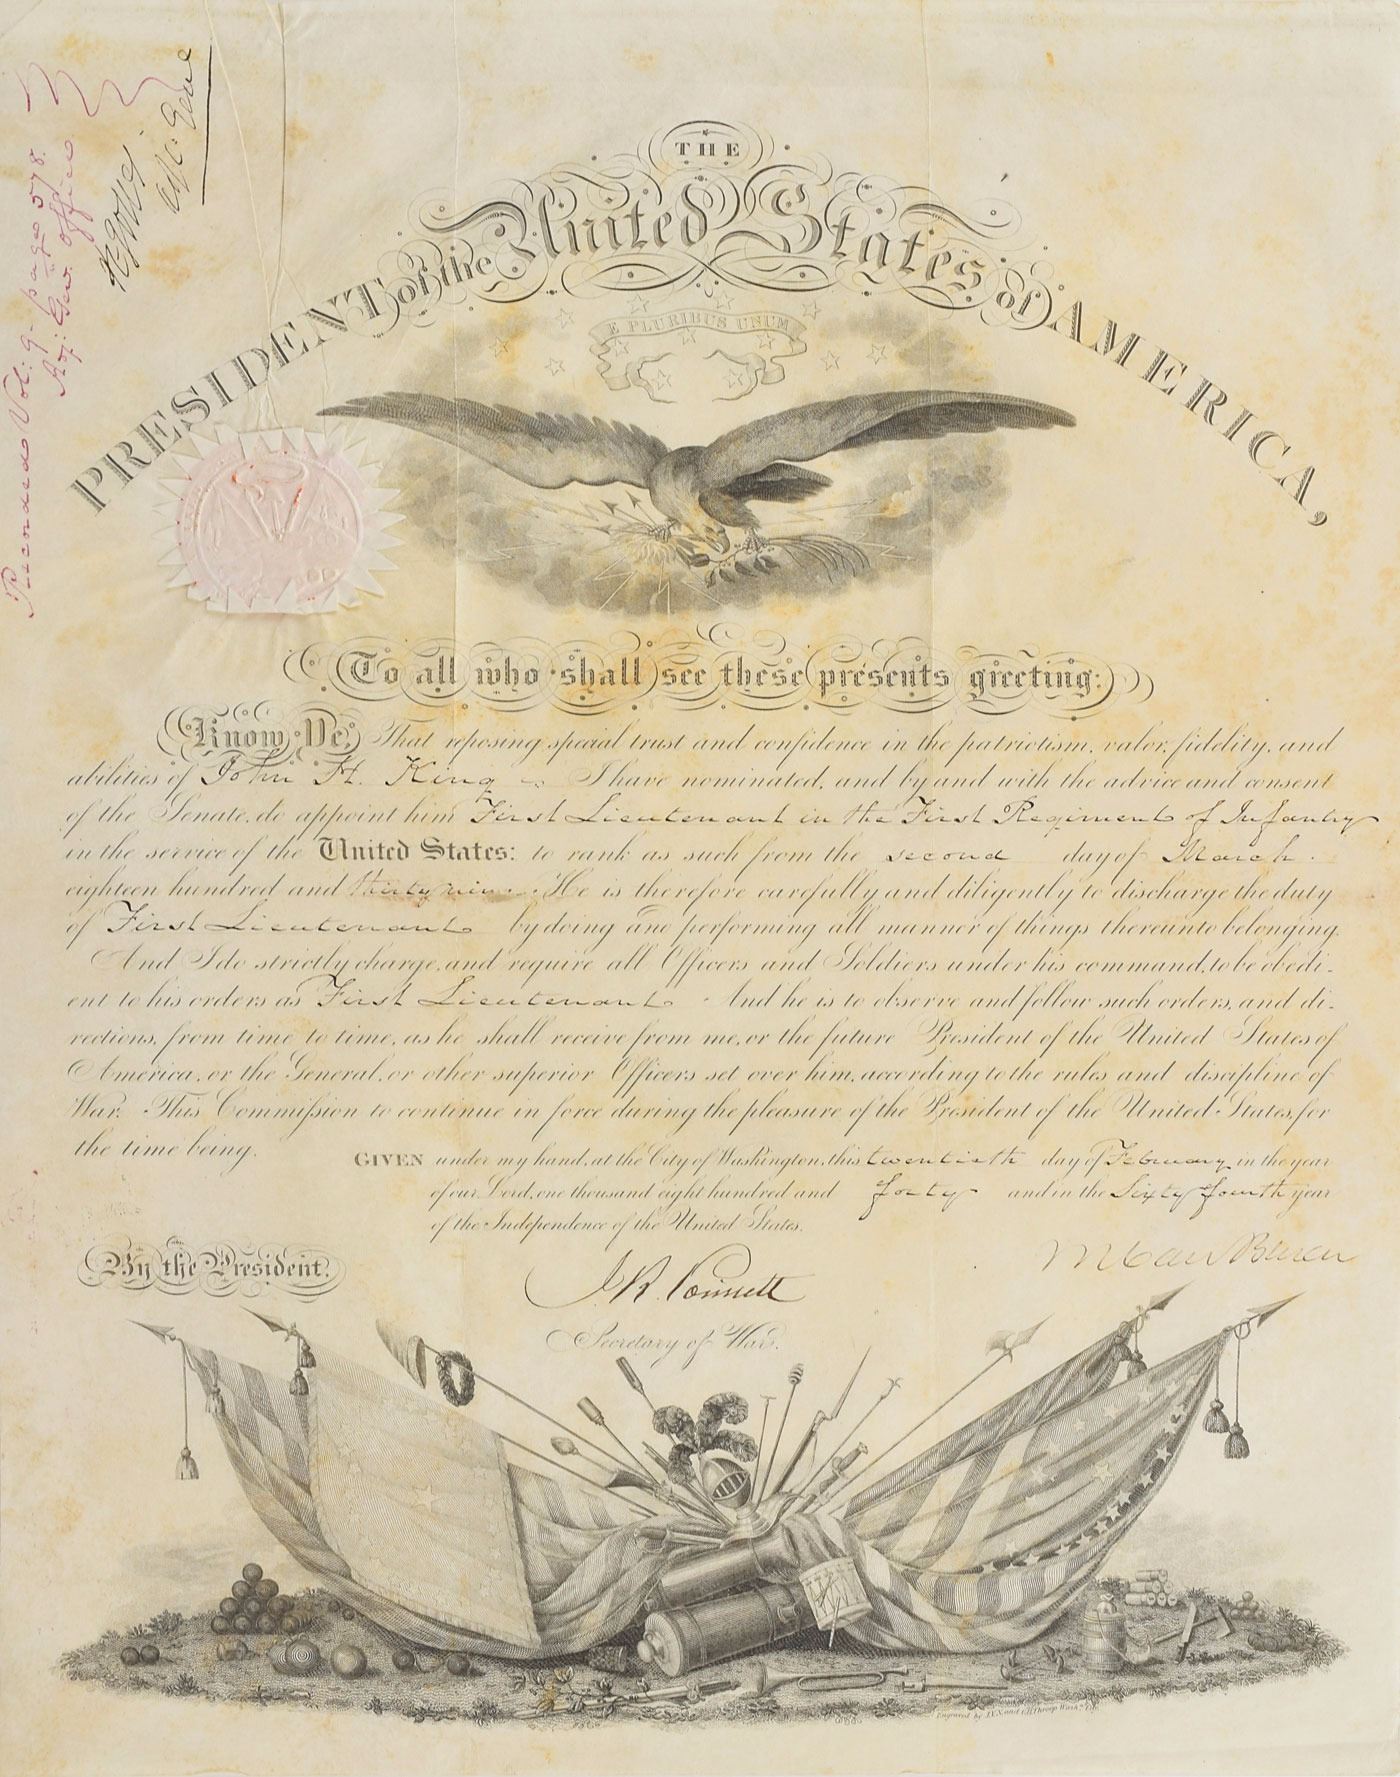 Recorded Vol: 9. page 578.
Adj: Gen: office
R Jones
Adj: Gen:
THE
PRESIDENT of the United States of AMERICA,
E PLURIBUS UNUM
To all who shall see these presents greeting:
Know Ye, That reposing special trust and confidence in the patriotism, valor, fidelity, and
abilities of John H. King I have nominated, and by and with the advice and consent
of the Senate, do appoint him First Lieutenant in the First Regiment of Infantry
in the service of the United States: to rank as such from the second day of March
eighteen hundred and thirty nine. He is therefore carefully and diligently to discharge the duty
of First Lieutenant by doing and performing all manner of things thereunto belonging.
And I do strictly charge, and require all Officers and Soldiers under his command, to be obedi-
ent to his orders as First Lieutenant And he is to observe and follow such orders, and di-
rections, from time to time, as he shall receive from me, or the future President of the United States of
America, or the General, or other superior Officers set over him, according to the rules and discipline of
War. This Commission to continue in force during the pleasure of the President of the United States, for
the time being.
GIVEN under my hand, at the City of Washington, this twentieth day of February in the year
of our Lord, one thousand eight hundred and forty and in the Sixty fourth year
of the Independence of the United States.
By the President.
M Van Buren
J. R. Poinsett
Secretary of War.
Engraved by J.V.N. and O.H. Throop Washn. City